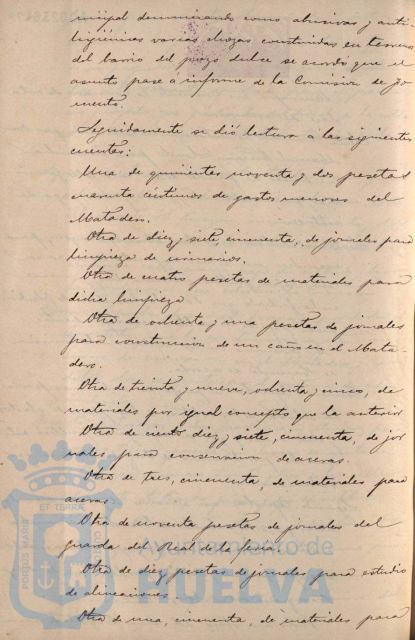 nicipal denunciando como abusivas y anti-
higiénicas varias chozas construidas en terreno
del barrio del pozo dulce se acordó que el
asunto pase á informe de la Comisión de Fo-
mento.
Seguidamente se dió lectura á las siguientes
cuentas:
Una de quinientas noventa y dos pesetas
cuarenta céntimos de gastos menores del
Matadero.
Otra de diez y siete, cincuenta, de jornales para
limpieza de urinarios.
Otra de cuatro pesetas de materiales para
dicha limpieza
Otra de ochenta y una pesetas de jornales
para construccion de un caño en el Mata-
dero.
Otra de treinta y nueve, ochenta y cinco, de
materiales por igual concepto que la anterior
Otra de ciento diez y siete, cincuenta, de jor
nales para conservacion de aceras.
Otra de tres, cincuenta, de materiales para
aceras.
Otra de noventa pesetas de jornales del
guarda del Real de la feria.
Otra de diez pesetas de jornales para estudio
de alineaciones.
Otra de una, cincuenta, de materiales para
PORTUS MARIS
ET TERRAE
Ayuntamiento de
HUELVA